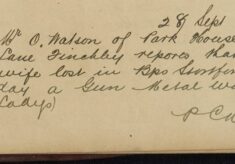 28 Sept
Mr O. Watson of Park House
Lane Finchley repores that
wife lost in Bps Stortford
day a Gun Metal
Ladys)
P.C.